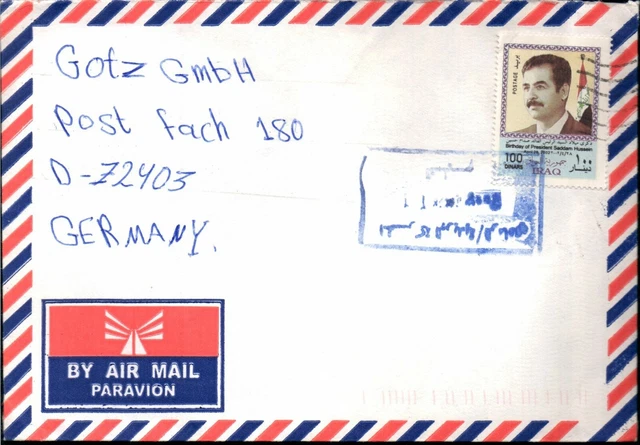 Gotz GmbH
Post fach 180
D-72403
GERMANY.
BY AIR MAIL
PARAVION
POSTAGE
بريد
Birthday of President Saddam Hussein
100
DINARS
١٠٠
دينار
IRAQ